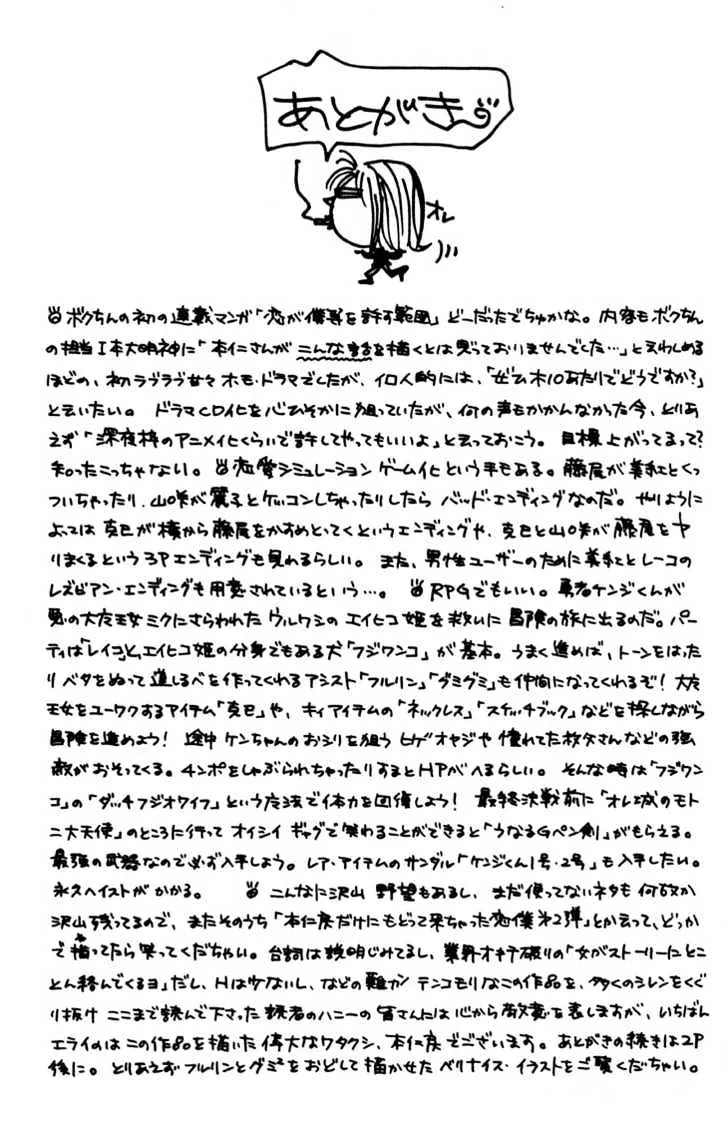 あとがき
オレ
ボクちんの初の連載マンガ「恋が僕等を許す範囲」どーだったでちゅかな。内容もボクちん
の担当I本大明神に「本仁さんがこんなまるを描くとは思っておりませんでした…」と云わしめる
ほどの、初ラヴラヴ甘々ホモ・ドラマでしたが、イロ人的には、「ぜひ木10あたりでどうですか?」
と云いたい。ドラマCD化を心ひそかに狙っていたが、何の声もかかんなかった今、とりあ
えず「深夜枠のアニメイヒくらいで許してやってもいいよ」と云っておこう。目標上がってるって?
知ったこっちゃない。恋愛シミュレーションゲーム化という手もある。藤尾が美紅とくっ
ついちゃったり、山咲が麗子とケッコンしちゃったりしたらバッド・エンディングなのだ。やりように
よっては克巳が横から藤尾をかすめとってくというエンディングや、克巳と山咲が藤尾をヤ
りまくるという3Pエンディングも見れるらしい。また、男性ユーザーのために美紅とレーコの
レズビアン・エンディングも用意されているという…。RPGでもいい。勇者ケンジくんが
悪の大女王ミクにさらわれたウルワシのエイヒコ姫を救いに冒険の旅に出るのだ。パー
ティは「レイコ」と、エイヒコ姫の分身でもある犬「フジワンコ」が基本。うまく進めば、トーンをはった
りベタをぬって道しるべを作ってくれるアシスト「フルリン」「グミグミ」も仲間になってくれるぞ!大
王女をユーワクするアイテム「克巳」や、キィアイテムの「ネックレス」「スケッチブック」などを探しながら
冒険を進めよう!途中ケンちゃんのおシリを狙うヒゲオヤジや憧れてた枚タさんなどの強
敵がおそってくる。チンポをしゃぶられちゃったりするとHPがへるらしい。そんな時は「フジワン
コ」の「ダッチフジオワイフ」という方法で体力を回復しよう!最終決戦前に「オレ城のモト
ニ大天使」のところに行ってオイシイギャグで笑わることができると「うなるGペン剣」がもらえる。
最強の武器なので必ず入手しよう。レア・アイテムのサンダル「ケンジくん1号・2号」も入手したい。
永久ヘイストがかかる。こんなに沢山野望もあるし、まだ使ってないネタも何故か
沢山残ってるので、またそのうち「本仁戻だけにもどって来ちゃった恋僕第2弾」とか云って、どっか
で描ってたら笑ってくだちゃい。台詞は説明じみてるし、業界オキテ破りの「女がストーリーにとこ
とん絡んでくるヨ」だし、Hは少ないし、などの難がテンコモリなこの作品を、多くのシレンをくぐ
り抜けここまで読んで下さった読者のハニーの皆さんには心から敬意を表しますが、いちばん
エライのはこの作品を描いた偉大なワタクシ、本仁戻でございます。あとがきの続きは2P
後に。とりあえずフルリンとグミ²をおどして描かせたベリナイス・イラストをご覧くだちゃい。